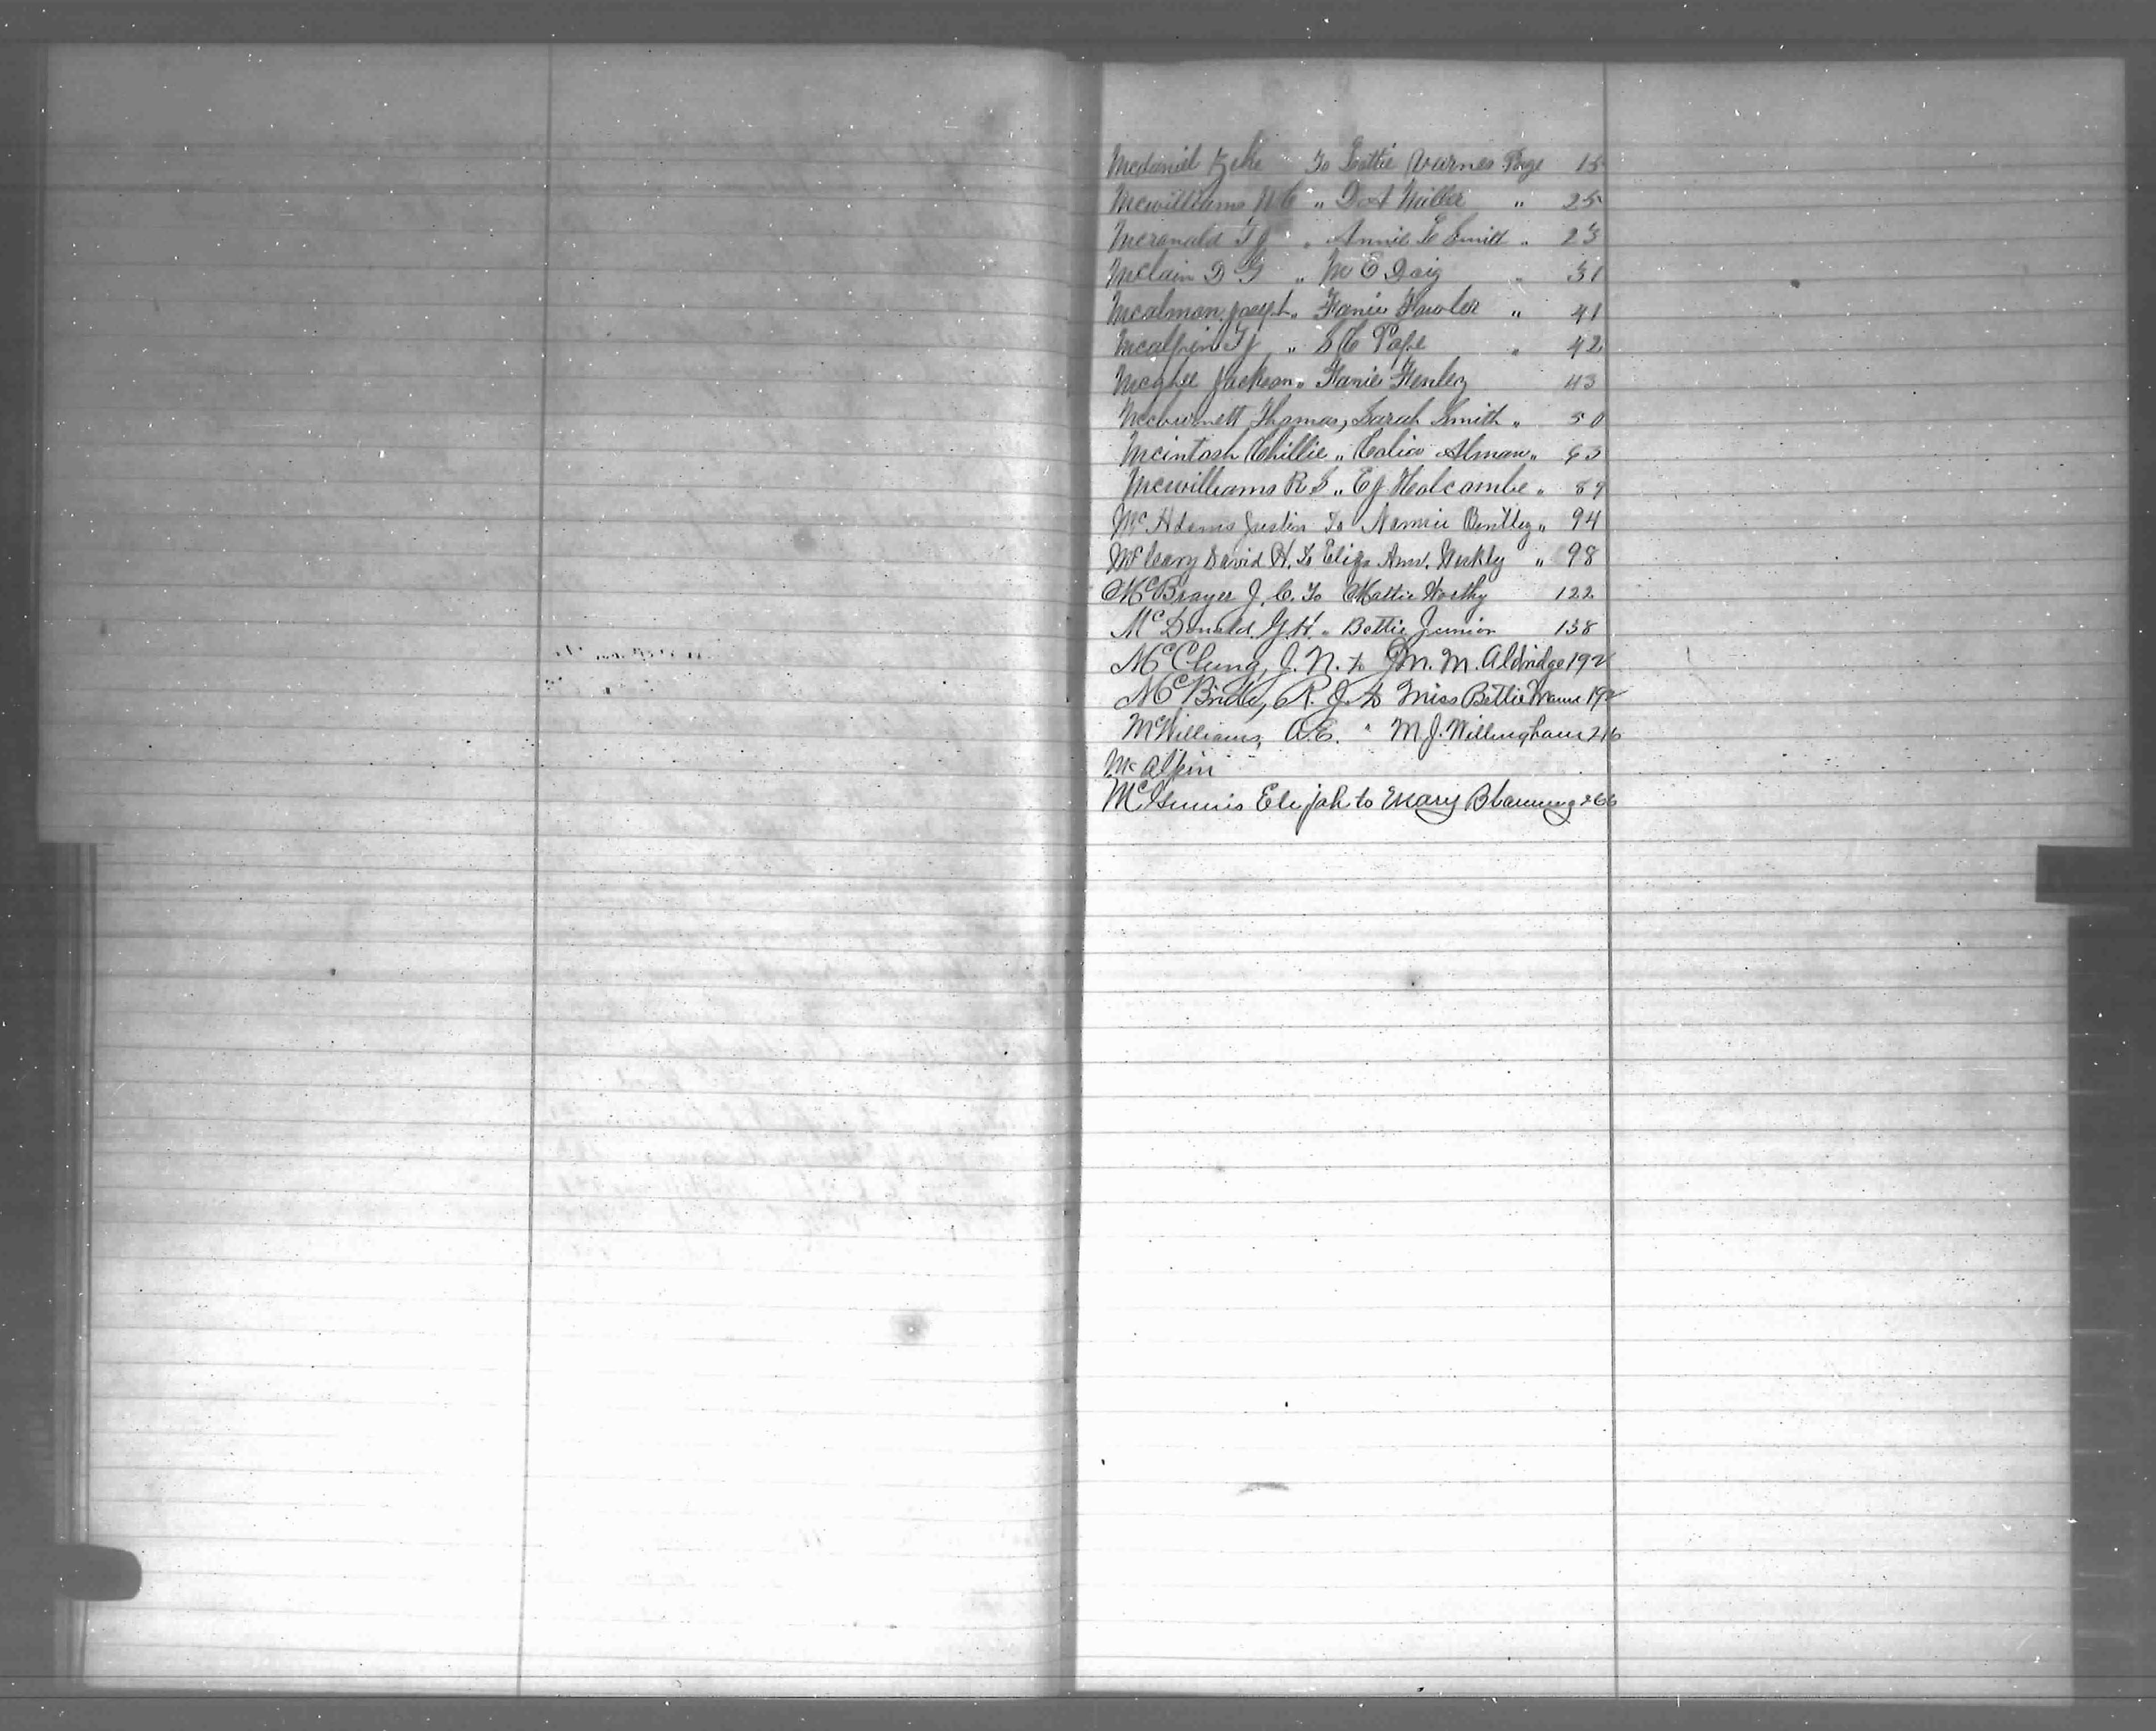 Mcdaniel Zeke To Lettie Page 15
Mcwilliams W C " D A Miller " 25
Mcronald T J " Annie L Smith " 23
Mclain D G " M E Doig " 31
Mcalman Joseph " Fanie Fowler " 41
Mcalpin T J " S C Pape " 42
Mcghee Jackson " Fanie Henley 43
Mcburnett Thomas, Sarah Smith " 50
Mcintosh Chillie " Calice Alman " 63
Mcwilliams R S " E J Holcombe " 89
Mc Adams Justin To Nannie Bentley " 94
McCleary David H. To Eliza Ann. Weekly " 98
McBrayer J. C. To Mattie Worthy 122
McDonald G. H. " Bettie Junior 138
McClung, J. N. to M. M. Aldridge 192
McBride, R. J. to Miss Bettie Mann 192
McWilliams, A. E. " M. J. Willingham 216
McAlpin
McGinnis Elijah to Mary B 266